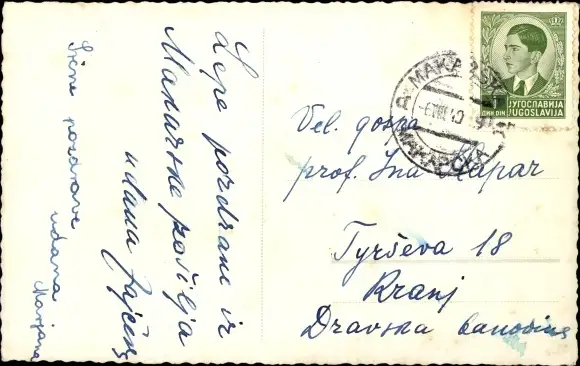 Lepe pozdrave iz
Makarske pošilja
udana Zajčeva
Srčne pozdrave
udana
Marjana
Vel. gospa
prof. Ina
Tyrševa 18
Kranj
Dravska banovina
MAKARSKA
МАКАРСКА
ЈУГОСЛАВИЈА
JUGOSLAVIJA